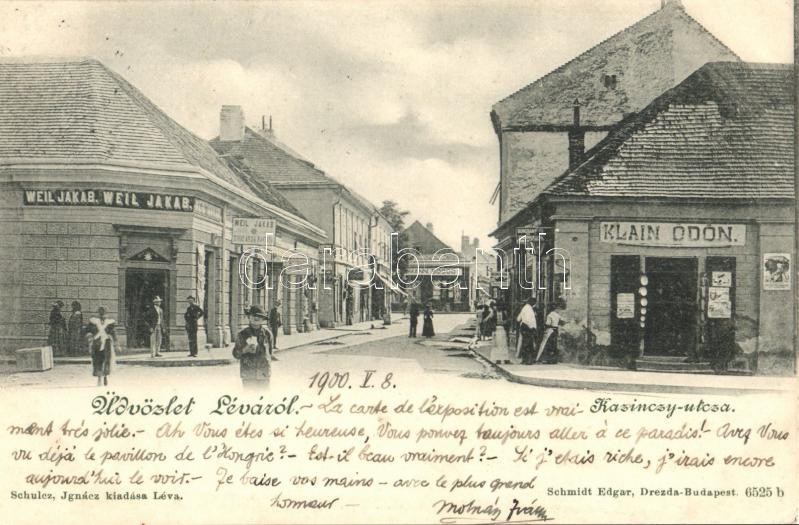 WEIL JAKAB. WEIL JAKAB.
WEIL JAKAB
KLAIN ÖDÖN.
darabanth
1900. V. 8.
Üdvözlet Léváról. - La carte de l'exposition est vrai- Kazinczy-utcza.
ment trés jolie. - Ah Vous étes si heureuse, Vous pouvez toujours aller à ce paradis! - Avez Vous
vu déjà le pavillon de l'Hongrie? - Est-il beau vraiment? - Si j'etais riche, j'irais encore
aujourd'hui le voir. - Je baise vos mains - avec le plus grand
honneur -
Molnár Iván
Schulcz, Jgnácz kiadása Léva.
Schmidt Edgar, Drezda-Budapest. 6525 b